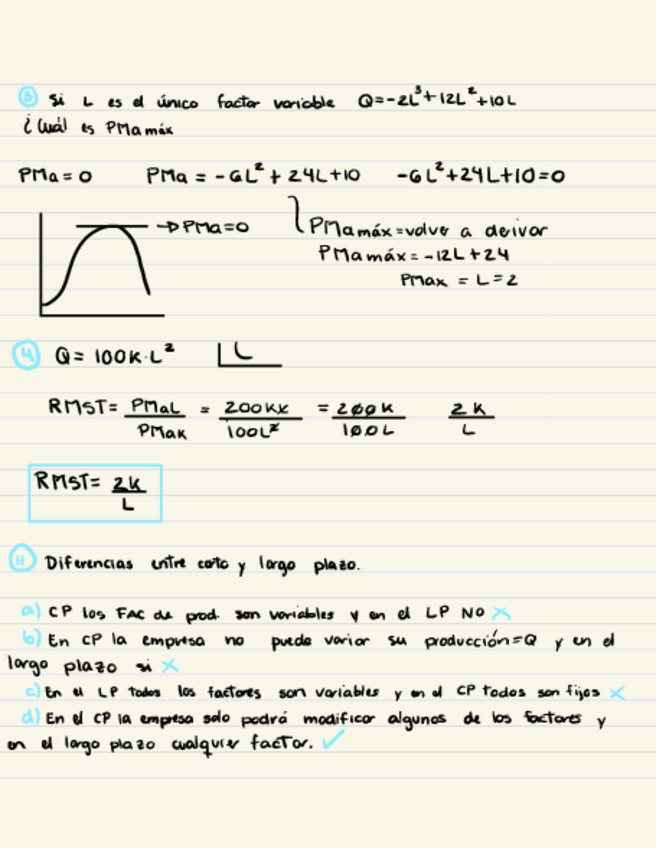 ③ Si L es el único factor variable Q=-2L³+12L²+10L
¿Cuál es PMa máx
PMa=0 PMa = -6L²+24L+10 -6L²+24L+10=0
→PMa=0 PMa máx=volve a derivar
PMa máx=-12L+24
PMax = L=2
④ Q= 100K·L²
RMST= PMaL / PMaK = 200KL / 100L² = 200K / 100L 2K / L
RMST= 2K / L
⑪ Diferencias entre corto y largo plazo.
a) CP los FAC de prod. son variables y en el LP NO ✗
b) En CP la empresa no puede variar su producción=Q y en el
largo plazo si ✗
c) En el LP todos los factores son variables y en el CP todos son fijos ✗
d) En el CP la empresa solo podrá modificar algunos de los factores y
en el largo plazo cualquier factor. ✓